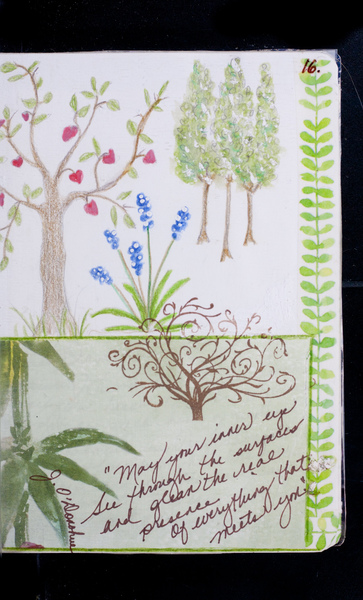 16.
"May your inner eye
see through the surfaces
and glean the real
presence
of everything that
meets you"
J. O'Donohue